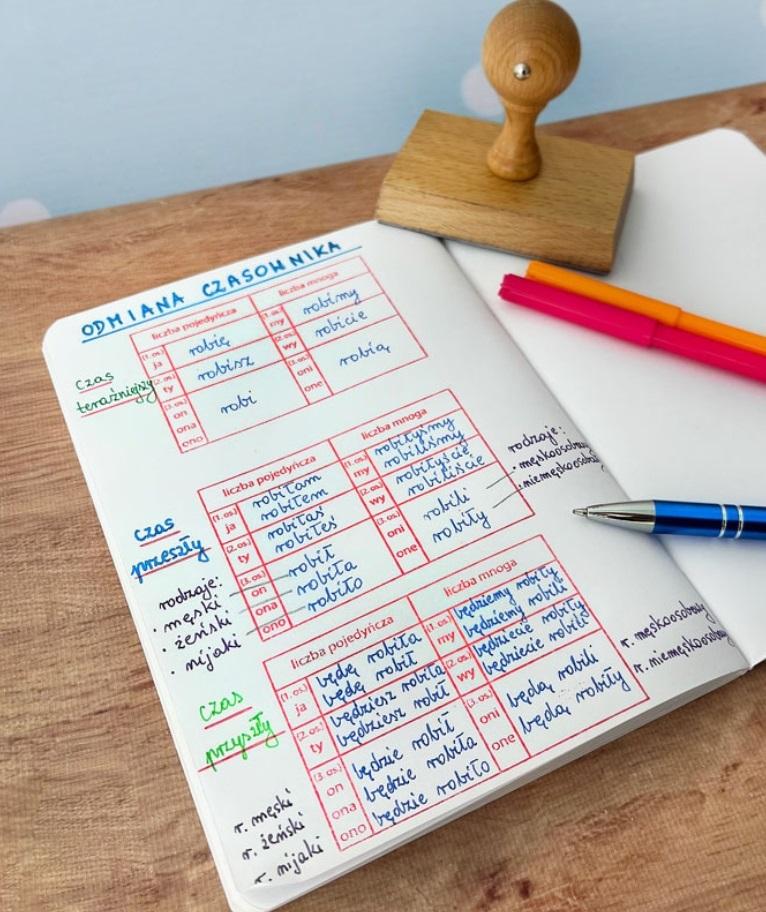 ODMIANA CZASOWNIKA
czas
teraźniejszy
liczba pojedyńcza liczba mnoga
(1.os.) ja robię (1.os.) my robimy
(2.os.) ty robisz (2.os.) wy robicie
(3.os.) on ona ono robi (3.os.) oni one robią
czas
przeszły
rodzaje:
· męski
· żeński
· nijaki
liczba pojedyńcza liczba mnoga
(1.os.) ja robiłam robiłem (1.os.) my robiłyśmy robiliśmy
(2.os.) ty robiłaś robiłeś (2.os.) wy robiłyście robiliście
(3.os.) on robił oni robili
ona robiła one robiły
ono robiło
rodzaje:
· męskoosobowy
· niemęskoosob
czas
przyszły
r. męski
r. żeński
r. nijaki
liczba pojedyńcza liczba mnoga
(1.os.) ja będę robiła będę robił (1.os.) my będziemy robiły będziemy robili
(2.os.) ty będziesz robiła będziesz robił (2.os.) wy będziecie robiły będziecie robili
(3.os.) on będzie robił (3.os.) oni będą robili
ona będzie robiła one będą robiły
ono będzie robiło
r. męskoosobowy
r. niemęskoosobowy